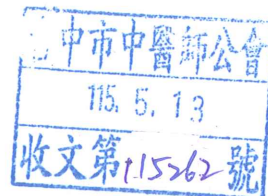 中市中醫師公會
115. 5. 13
收文第115262號